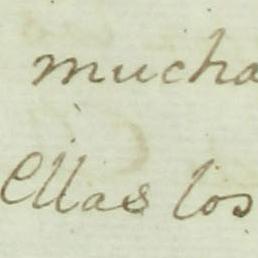 mucha
Ellas los